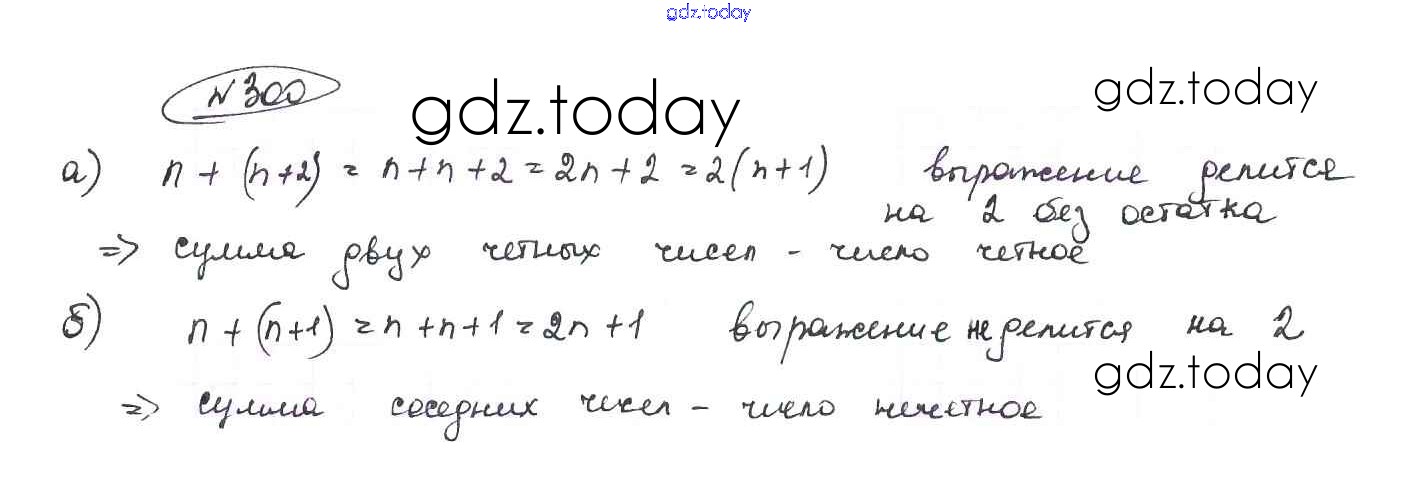 gdz.today
№300
gdz.today
gdz.today
а) n + (n+2) = n+n+2 = 2n+2 = 2(n+1) выражение делится
на 2 без остатка
=> сумма двух четных чисел - число четное
б) n + (n+1) = n+n+1 = 2n+1 выражение не делится на 2
gdz.today
=> сумма соседних чисел - число нечетное